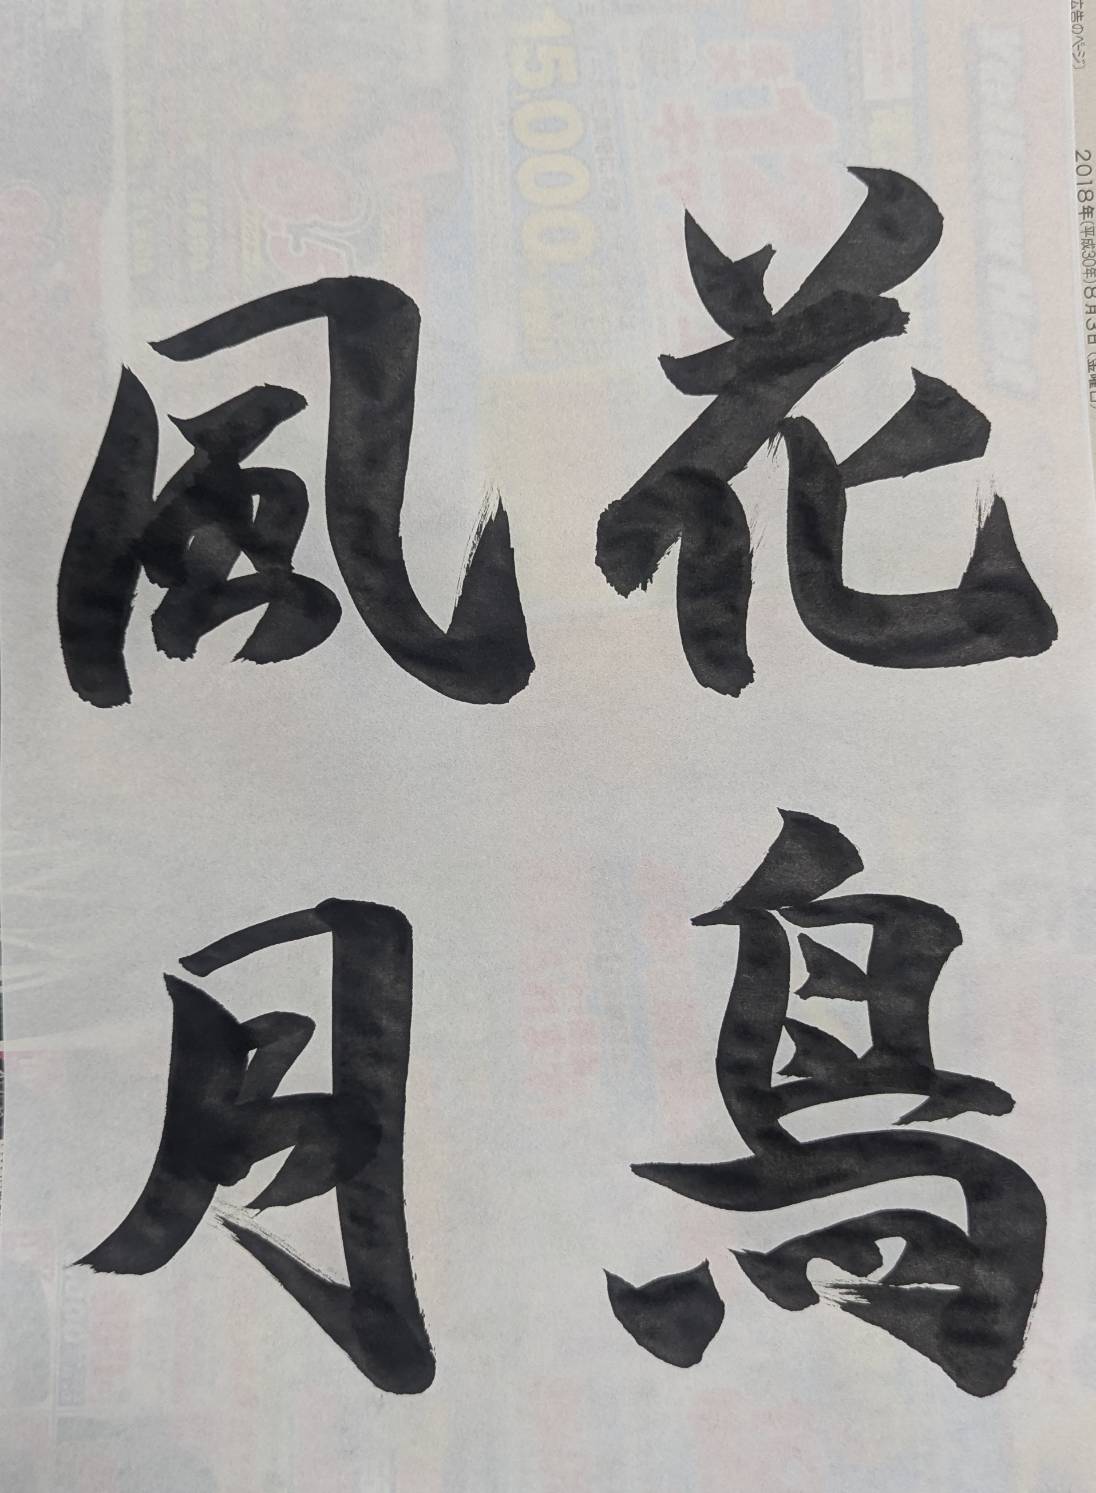 花鳥
風月
広告のページ
2018年(平成30年)8月3日(金曜日)
15,000